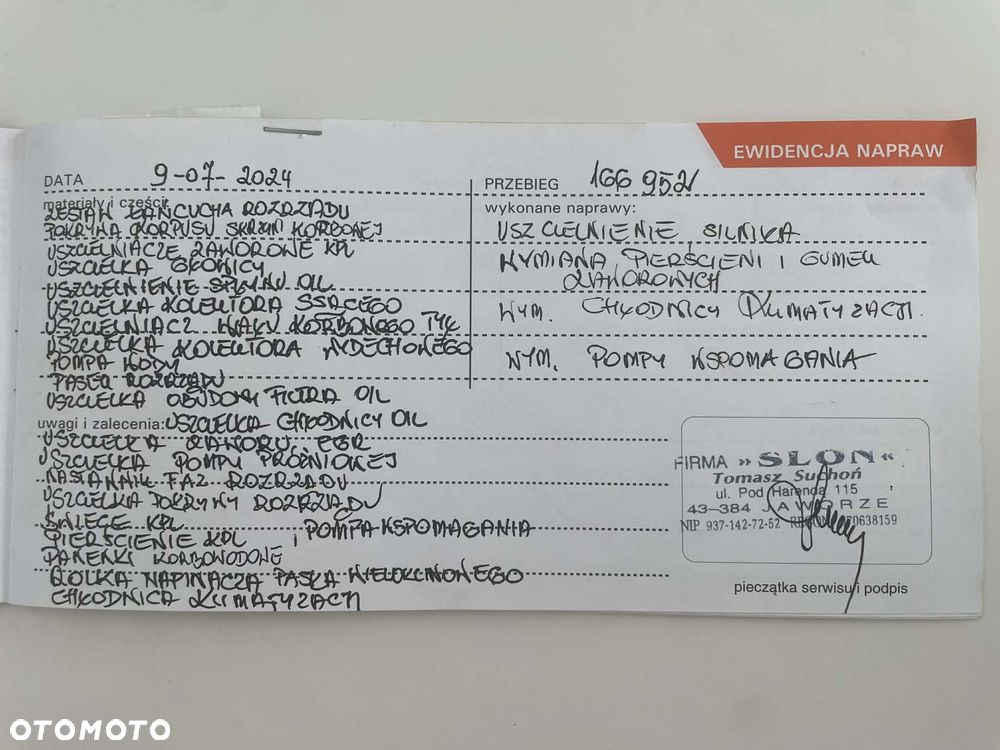 EWIDENCJA NAPRAW
DATA 9-07-2024
PRZEBIEG 166 952
materiały i części:
ZESTAW ŁAŃCUCHA ROZRZĄDU
POKRYWA KORPUSU SKRZYNI KORBOWEJ
USZCZELNIACZE ZAWOROWE KPL
USZCZELKA GŁOWICY
USZCZELNIENIE SPŁYWU OIL
USZCZELKA KOLEKTORA SSĄCEGO
USZCZELNIACZ WAŁU KORBOWEGO TYŁ
USZCZELKA KOLEKTORA WYDECHOWEGO
POMPA WODY
PASEK ROZRZĄDU
USZCZELKA OBUDOWY FILTRA OIL
wykonane naprawy:
USZCZELNIENIE SILNIKA
WYMIANA PIERŚCIENI I GUMEK
ZAWOROWYCH
WYM. CHŁODNICY KLIMATYZACJI.
WYM. POMPY WSPOMAGANIA
uwagi i zalecenia: USZCZELKA CHŁODNICY OIL
USZCZELKA ZAWORU EGR
USZCZELKA POMPY PRÓŻNIOWEJ
NASTAWNIK FAZ ROZRZĄDU
USZCZELKA POKRYWY ROZRZĄDU
ŚWIECE KPL
PIERŚCIENIE KPL i POMPA WSPOMAGANIA
PANEWKI KORBOWODOWE
ROLKA NAPINACZA PASKA WIELOKLINOWEGO
CHŁODNICA KLIMATYZACJI
FIRMA »SŁON«
Tomasz Suchoń
ul. Pod Harendą 115
43-384 JAWORZE
NIP 937-142-72-52
pieczątka serwisu i podpis
OTOMOTO